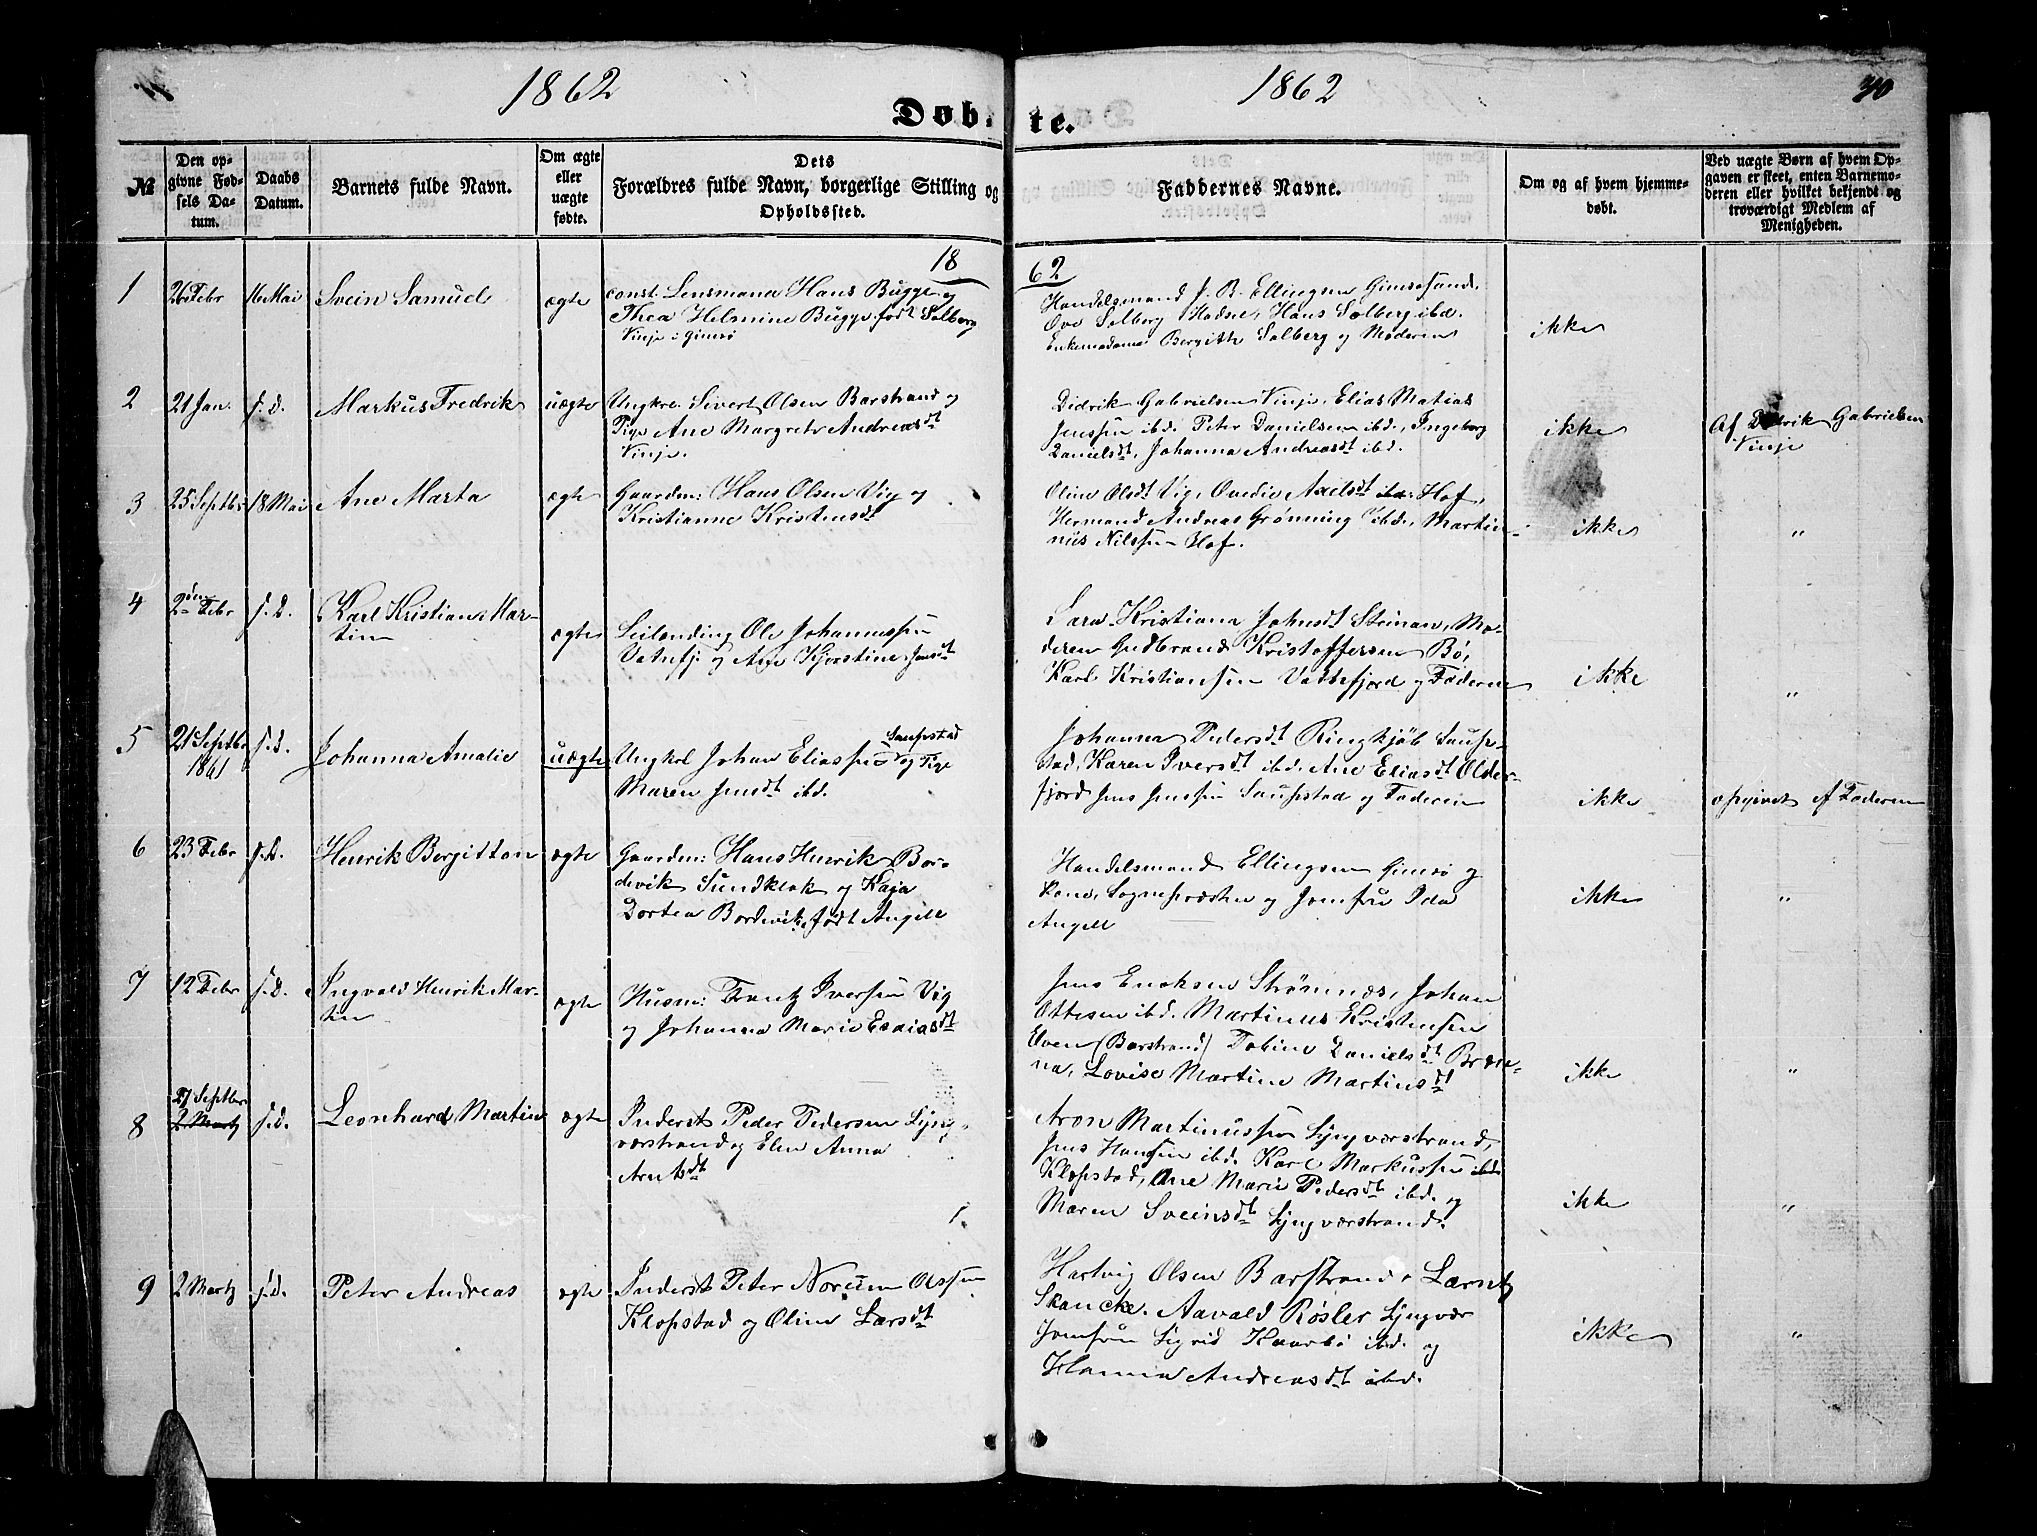 1862
1862
30
Døbte.
№
Den opgivne Fødsels Datum.
Daabs Datum.
Barnets fulde Navn.
Om ægte eller uægte fødte.
Dets Forældres fulde Navn, borgerlige Stilling og Opholdssted.
Faddernes Navne.
Om og af hvem hjemmedøbt.
Ved uægte Børn af hvem Opgaven er skeet, enten Barnemoderen eller hvilket bekjendt og troværdigt Medlem af Menigheden.
18
62
1 26 Febr 16 Mai Svein Samuel ægte
const. Lensmand Hans Bugge og
Thea Helmine Bugge født Solberg
Vinje i Gimsø
Handelsmand J. B. Ellingsen Gimsøsand,
Ove Solberg Hadsel, Hans Solberg ibd.
Enkemadame Bergitte Solberg og Moderen
ikke
2 21 Jan. s. D. Markus Fredrik uægte
Ungkrl Sivert Olsen Barstrand og
Pige Ane Margrete Andreasdt
Vinje.
Didrik Gabrielsen Vinje, Elias Matias
Jenssen ibd. Peter Danielsen ibd., Ingeborg
Danielsdt, Johanna Andreasdt ibd.
ikke
Af Didrik Gabrielsen
Vinje
3 25 Septbr 18 Mai Ane Marta ægte
Gaardm: Hans Olsen Vig og
Kristianne Kristensdt
Oline Olsdt Vig, Ovedie Axelsdt Hof,
Hermand Andreas Grønning ibd., Martin-
nus Nilssen Hof.
ikke
"
4 2den Febr s. D. Karl Kristian Mar-
tin
ægte
Leilending Ole Johannessen
Vatnfj. og Ane Kjerstine Jensdt
Sara Kristiana Johnsdt Steinan, Mo-
deren Gudbrand Kristoffersen Bø,
Karl Kristiansen Vattefjord og Faderen
ikke
"
5 21 Septbr s. D. Johanna Amalie uægte
1861
Ungkrl Johan Eliassen Saupstad og Pige
Maren Jensdt ibd.
Johanna Pedersdt Ringkjøb Saup-
stad, Karen Iversdt ibd. Ane Eliasdt Older-
fjord Jens Jenssen Saupstad og Faderen
ikke
opgivet af Faderen
6 23 Febr s. D. Henrik Bergitton ægte
Gaardm: Hans Henrik Bor-
devik Sundklak og Kaja
Dortea Bordevik, født Angell
Handelsmand Ellingsen Gimsø og
Kone, Sognepræsten og Jomfru Ida
Angell
ikke
"
7 12 Febr s. D. Ingvald Henrik Mar-
tin
ægte
Husm: Frantz Iversen Vig
og Johanna Marie Esaiasdt
Jens Ericksen Strømnæs, Johan
Ottesen ibd. Martinus Kristensen
Elven (Barstrand) Tobine Danielsdt Bræn-
na, Lovise Martine Martinsdt
ikke
"
27 Septbr
8 2 Martz s. D. Leonhard Martin ægte
Inderst Peder Pedersen Lyng-
værstrand og Elen Anna
Arntsdt
Aron Martinussen Lyngværstrand,
Jens Hansen ibd. Karl Markussen ibd
Klopstad, Ane Marie Pedersdt ibd. og
Maren Sveinsdt Lyngværstrand.
ikke
"
9 2 Martz s. D. Peter Andreas ægte
Inderst Peter Norum Olssen
Klopstad og Oline Larsdt
Hartvig Olsen Barstrand, Lærntz
Skancke, Aavald Røsler Lyngvær
Jomfru Sigrid Kaarbø ibd. og
Hanna Andreasdt ibd.
ikke
"